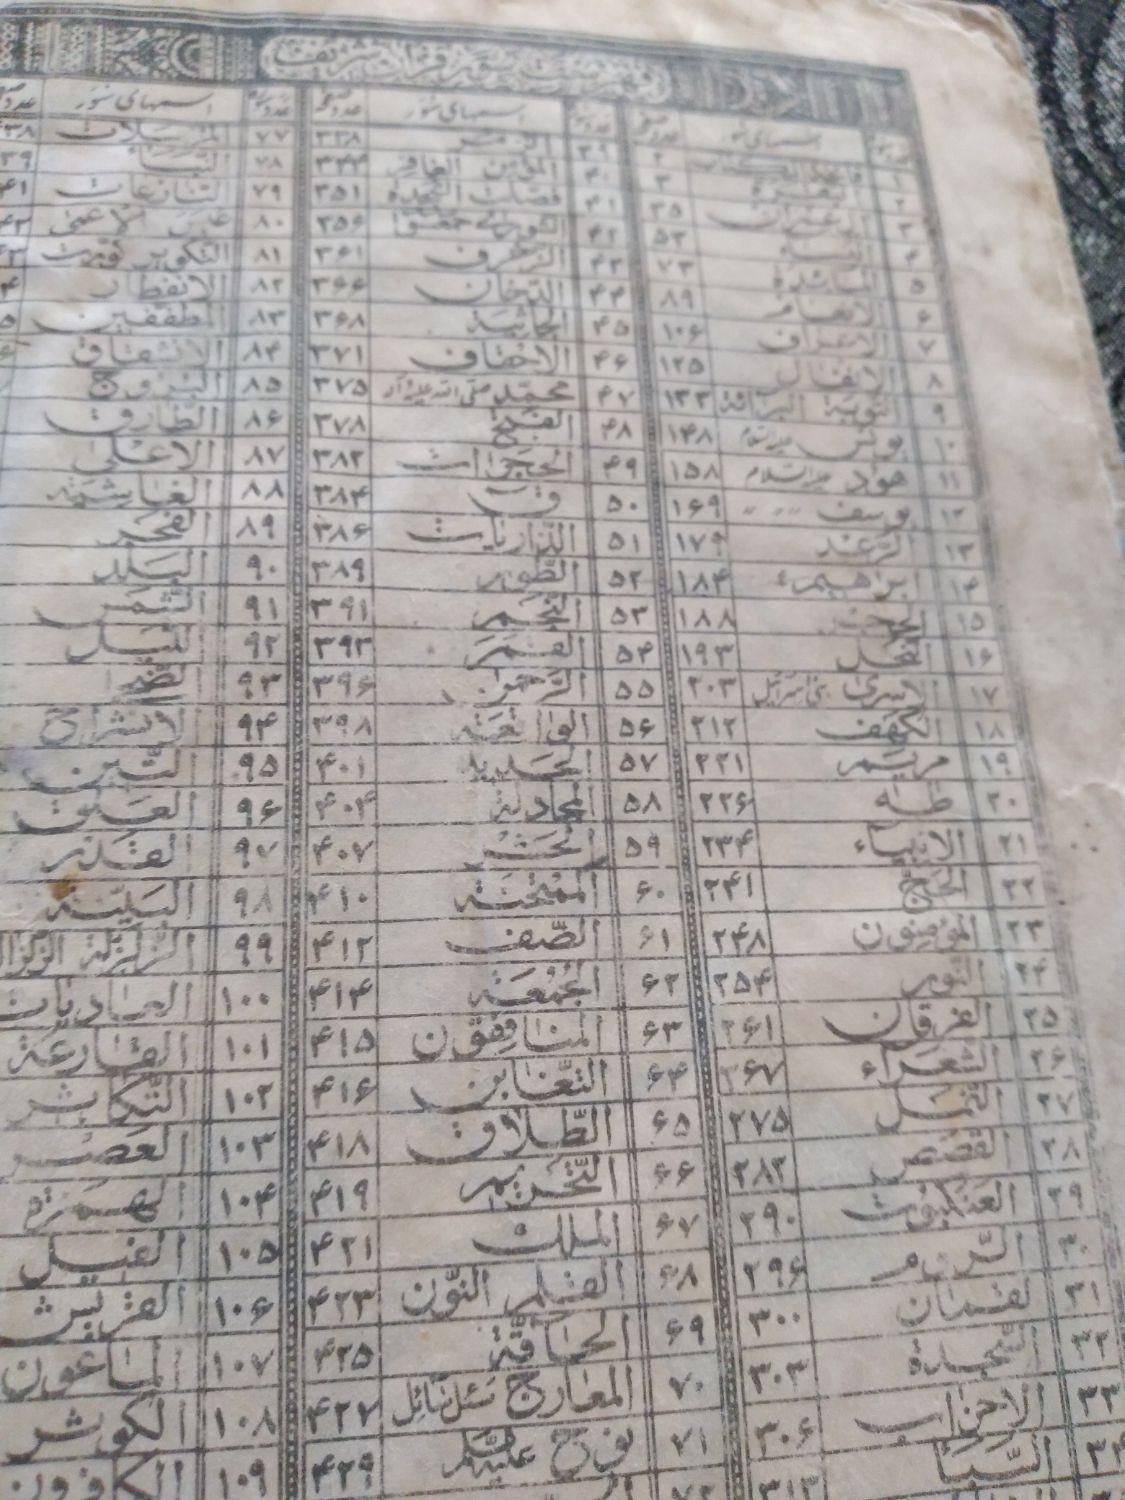 فهرست سور قرآن شریف
عدد سوره اسمهای سور عدد صفحه
۱ فاتحة الکتاب ۲
۲ البقرة ۳
۳ آل عمران ۳۵
۴ النساء ۵۳
۵ المائدة ۷۳
۶ الانعام ۸۹
۷ الاعراف ۱۰۶
۸ الانفال ۱۲۵
۹ التوبة البرائة ۱۳۲
۱۰ یونس علیه السلام ۱۴۸
۱۱ هود علیه السلام ۱۵۸
۱۲ یوسف ۱۶۹
۱۳ الرعد ۱۷۹
۱۴ ابراهیم ۱۸۴
۱۵ الحجر ۱۸۸
۱۶ النحل ۱۹۳
۱۷ الاسری بنی اسرائیل ۲۰۳
۱۸ الکهف ۲۱۲
۱۹ مریم ۲۲۱
۲۰ طه ۲۲۶
۲۱ الانبیاء ۲۳۴
۲۲ الحج ۲۴۱
۲۳ المؤمنون ۲۴۸
۲۴ النور ۲۵۴
۲۵ الفرقان ۲۶۱
۲۶ الشعراء ۲۶۷
۲۷ النمل ۲۷۵
۲۸ القصص ۲۸۲
۲۹ العنکبوت ۲۹۰
۳۰ الروم ۲۹۶
۳۱ لقمان ۳۰۰
۳۲ السجدة ۳۰۳
۳۳ الاحزاب ۳۰۶
۳۴ السبأ ۳۱۳
عدد سوره اسمهای سور عدد صفحه
۳۹ الزمر ۳۳۸
۴۰ المؤمن الغافر ۳۴۴
۴۱ فصلت السجدة ۳۵۱
۴۲ الشوری حمعسق ۳۵۶
۴۳ الزخرف ۳۶۱
۴۴ الدخان ۳۶۶
۴۵ الجاثیة ۳۶۸
۴۶ الاحقاف ۳۷۱
۴۷ محمد صلی الله علیه وآله ۳۷۵
۴۸ الفتح ۳۷۸
۴۹ الحجرات ۳۸۲
۵۰ ق ۳۸۴
۵۱ الذاریات ۳۸۶
۵۲ الطور ۳۸۹
۵۳ النجم ۳۹۱
۵۴ القمر ۳۹۳
۵۵ الرحمن ۳۹۶
۵۶ الواقعة ۳۹۸
۵۷ الحدید ۴۰۱
۵۸ المجادلة ۴۰۴
۵۹ الحشر ۴۰۷
۶۰ الممتحنة ۴۱۰
۶۱ الصف ۴۱۲
۶۲ الجمعة ۴۱۴
۶۳ المنافقون ۴۱۵
۶۴ التغابن ۴۱۶
۶۵ الطلاق ۴۱۸
۶۶ التحریم ۴۱۹
۶۷ الملک ۴۲۱
۶۸ القلم النون ۴۲۳
۶۹ الحاقة ۴۲۵
۷۰ المعارج سئل سائل ۴۲۷
۷۱ نوح علیه السلام ۴۲۹
۷۲
عدد سوره اسمهای سور عدد صفحه
۷۷ المرسلات
۷۸ النبأ
۷۹ النازعات
۸۰ عبس الاعمی
۸۱ التکویر کورت
۸۲ الانفطار
۸۳ المطففین
۸۴ الانشقاق
۸۵ البروج
۸۶ الطارق
۸۷ الاعلی
۸۸ الغاشیة
۸۹ الفجر
۹۰ البلد
۹۱ الشمس
۹۲ اللیل
۹۳ الضحی
۹۴ الانشراح
۹۵ التین
۹۶ العلق
۹۷ القدر
۹۸ البینة
۹۹ الزلزلة الزلزال
۱۰۰ العادیات
۱۰۱ القارعة
۱۰۲ التکاثر
۱۰۳ العصر
۱۰۴ الهمزة
۱۰۵ الفیل
۱۰۶ القریش
۱۰۷ الماعون
۱۰۸ الکوثر
۱۰۹ الکافرون